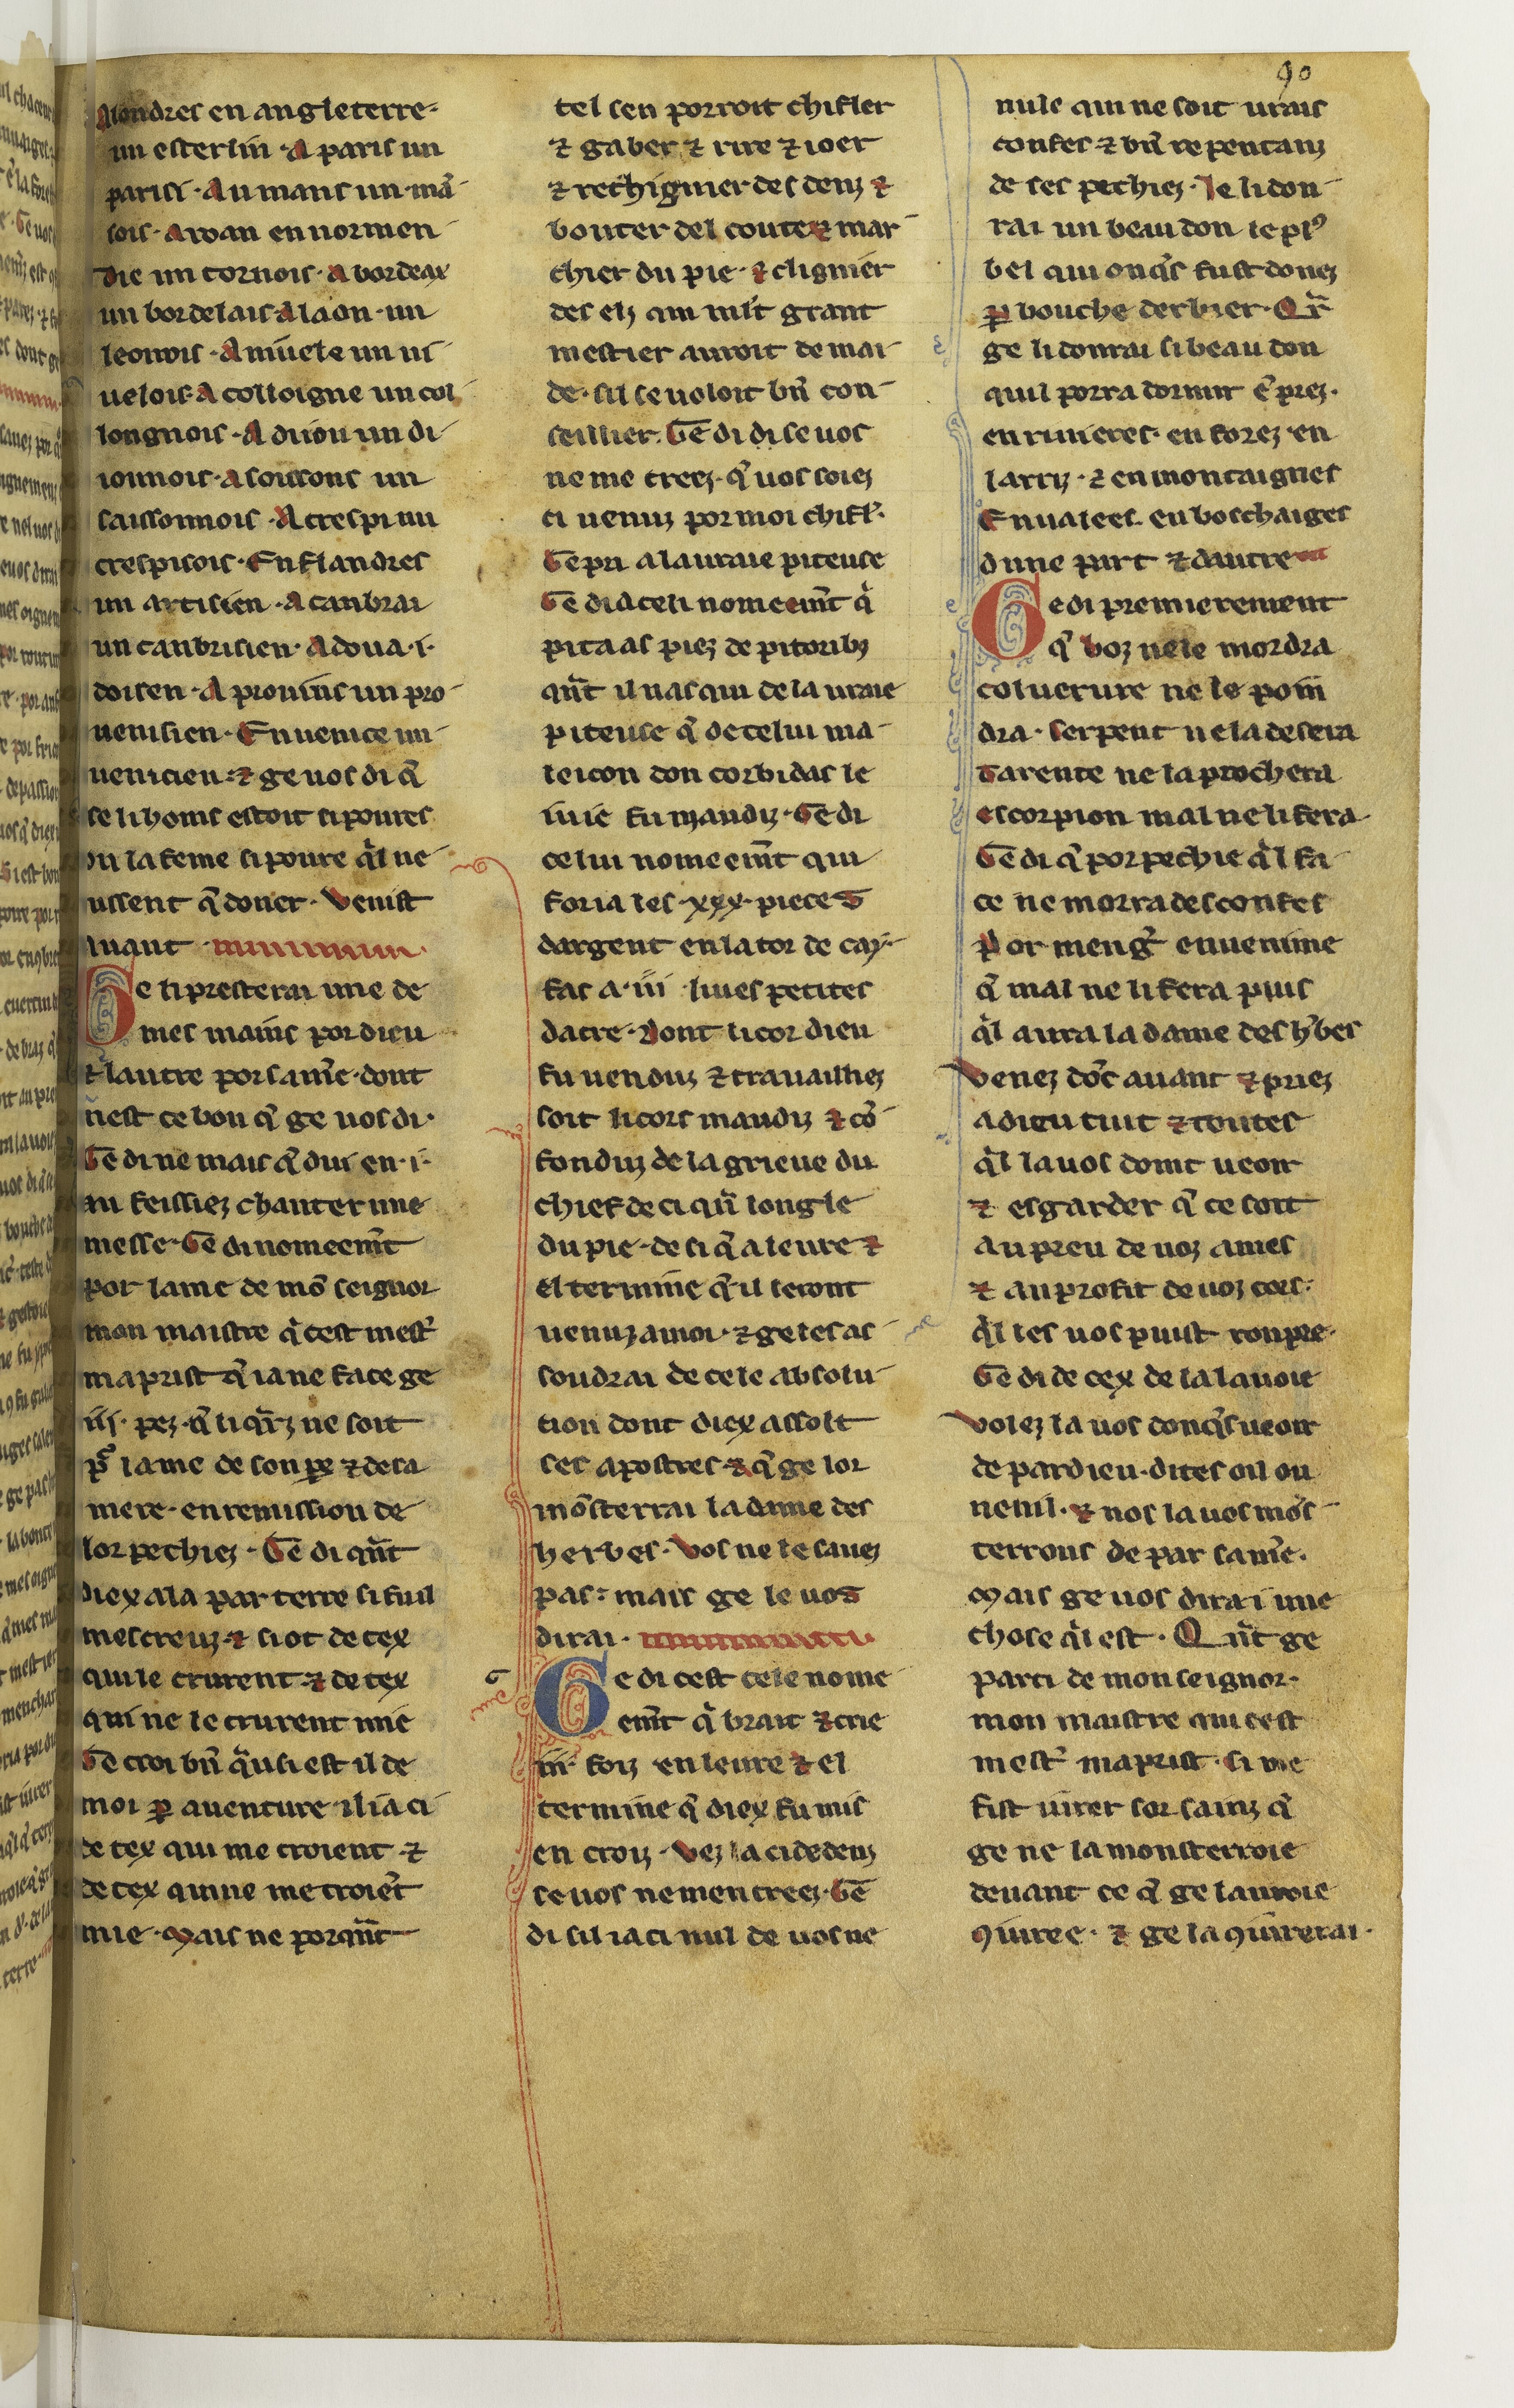 90
Alondres en angleterre-
un esterlin · A paris un
parisi · Au mans un mā
sois · Aroan en normen
die un tornois · A bordeax
un bordelais · A laon · un
leonois · A miuele un ni
uelois · A colloigne un col
longnois · A diiou un di
ionnois · A soissons un
saissonnois · A crespi un
crespisois · En flandres
un artisien · A canbrai
un canbrisien · A doua · i ·
doisen · A prouins un pro
uenisien · En uenice un
uenicien · ⁊ ge uos di q̄
se li homs estoit si poures
ou la feme si poure q̄l ne
ussent q̄ doner · Venist
auant
Ge li presterai une de
mes mains por dieu
⁊ lautre por sa m̄e · dont
nest ce bon q̄ ge uos di ·
Ge di ne mais q̄ dui en · i ·
an feissiez chanter une
messe · Ge di nomeem̄t
por lame de mō seignor
mon maistre q̄ cest mest̄
maprist q̄ ia ne face ge
iij · pez · q̄ li q̄rz ne soit
p̄ lame de son pe ⁊ de sa
mere · en remission de
lor pechiez · Ge di q̄nt
diex ala par terre si fu il
mescreuz · ⁊ si ot de cex
qui le crurent ⁊ de cex
qui ne le crurent mie
Ge croi bn̄ q̄usi est il de
moi ꝑ auenture il ia ci
de cex qui me croient · ⁊
de cex qui ne me croiēt
mie · Mais ne porq̄nt
tel sen porroit chifler
⁊ gaber ⁊ rire ⁊ ioer
⁊ rechignier des denz ⁊
bouter del coute ⁊ mar
chier du pie · ⁊ clignier
des elz qui ml̄t grant
mestier auroit de mai
de · sil se uoloit bn̄ con
seillier · Ge di di se uos
ne me creez · q̄ uos soiez
ci uenuz por moi chifl̄ ·
Ge pri a la uraie piteuse
Ge di a celi nomeem̄t q̄
pita as piez de pitoribꝫ
q̄nt il nasqui de la uraie
piteuse q̄ de celui ma
leicon don corbidas le
iuie fu maudiz · Ge di
celui nomeem̄t qui
foria les · xxx · pieces
dargent en la tor de cay
fas a · iii · liues petites
dacre · Dont li cor dieu
fu uenduz ⁊ trauailliez
soit li cors maudiz ⁊ cō
fonduz de la grieue du
chief de ci qū longle
du pie · de si q̄ a leure ⁊
el termine q̄ il seront
uenuz a moi · ⁊ ge les as
soudrai de cele absolu
tion dont diex assolt
ses apostres · ⁊ q̄ ge lor
mōsterrai la dame des
herbes · Vos ne le sauez
pas : mais ge le uos
dirai ·
Ge di cest cele nome
em̄t q̄ brait ⁊ crie
iii · foiz en leure ⁊ el
termine q̄ diex fu mis
en croiz · Vez la ci dedenz
se uos ne men creez · Ge
di sil ia ci nul de uos ne
nule qui ne soit urais
confes ⁊ bn̄ repentanz
de ses pechiez · Ie li don
rai un beau don le plꝰ
bel qui onq̄s fust donez
ꝑ bouche derbier · Qr̄
ge li donrai si beau don
quil porra dormir ē prez ·
en riuieres · en forez · en
larriz · ⁊ en montaignes
En ualees · en boschaiges
dune part ⁊ dautre
Ge di premierement
q̄ boz ne le mordra
coluerure ne le poin
dra · Serpent ne la desera
Tarente ne laprochera
escorpion mal ne li fera
Ge di q̄ por pechie q̄l fa
ce ne morra desconfes
Por menḡ enuenime
q̄ mal ne li fera puis
q̄l aura la dame des h̄bes
Venez dōc auant ⁊ priez
a dieu tuit ⁊ toutes
q̄l la uos doint ueoir
⁊ esgarder q̄ ce soit
au preu de uoz ames
⁊ au profit de uoz cors ·
q̄l les uos puist ronpre ·
Ge di de cex de la lauoie
Volez la uos donq̄s ueoir
de par dieu · dites oil ou
nenil · ⁊ nos la uos mōs
terrons de par sa m̄e ·
Mais ge uos dirai une
chose q̄l est · Qn̄t ge
parti de mon seignor ·
mon maistre qui cest
mest̄ maprist · si me
fist iurer sor sainz q̄
ge ne la monsterroie
deuant ce q̄ ge lauroie
ꝯiuree · ⁊ ge la ꝯiurerai ·